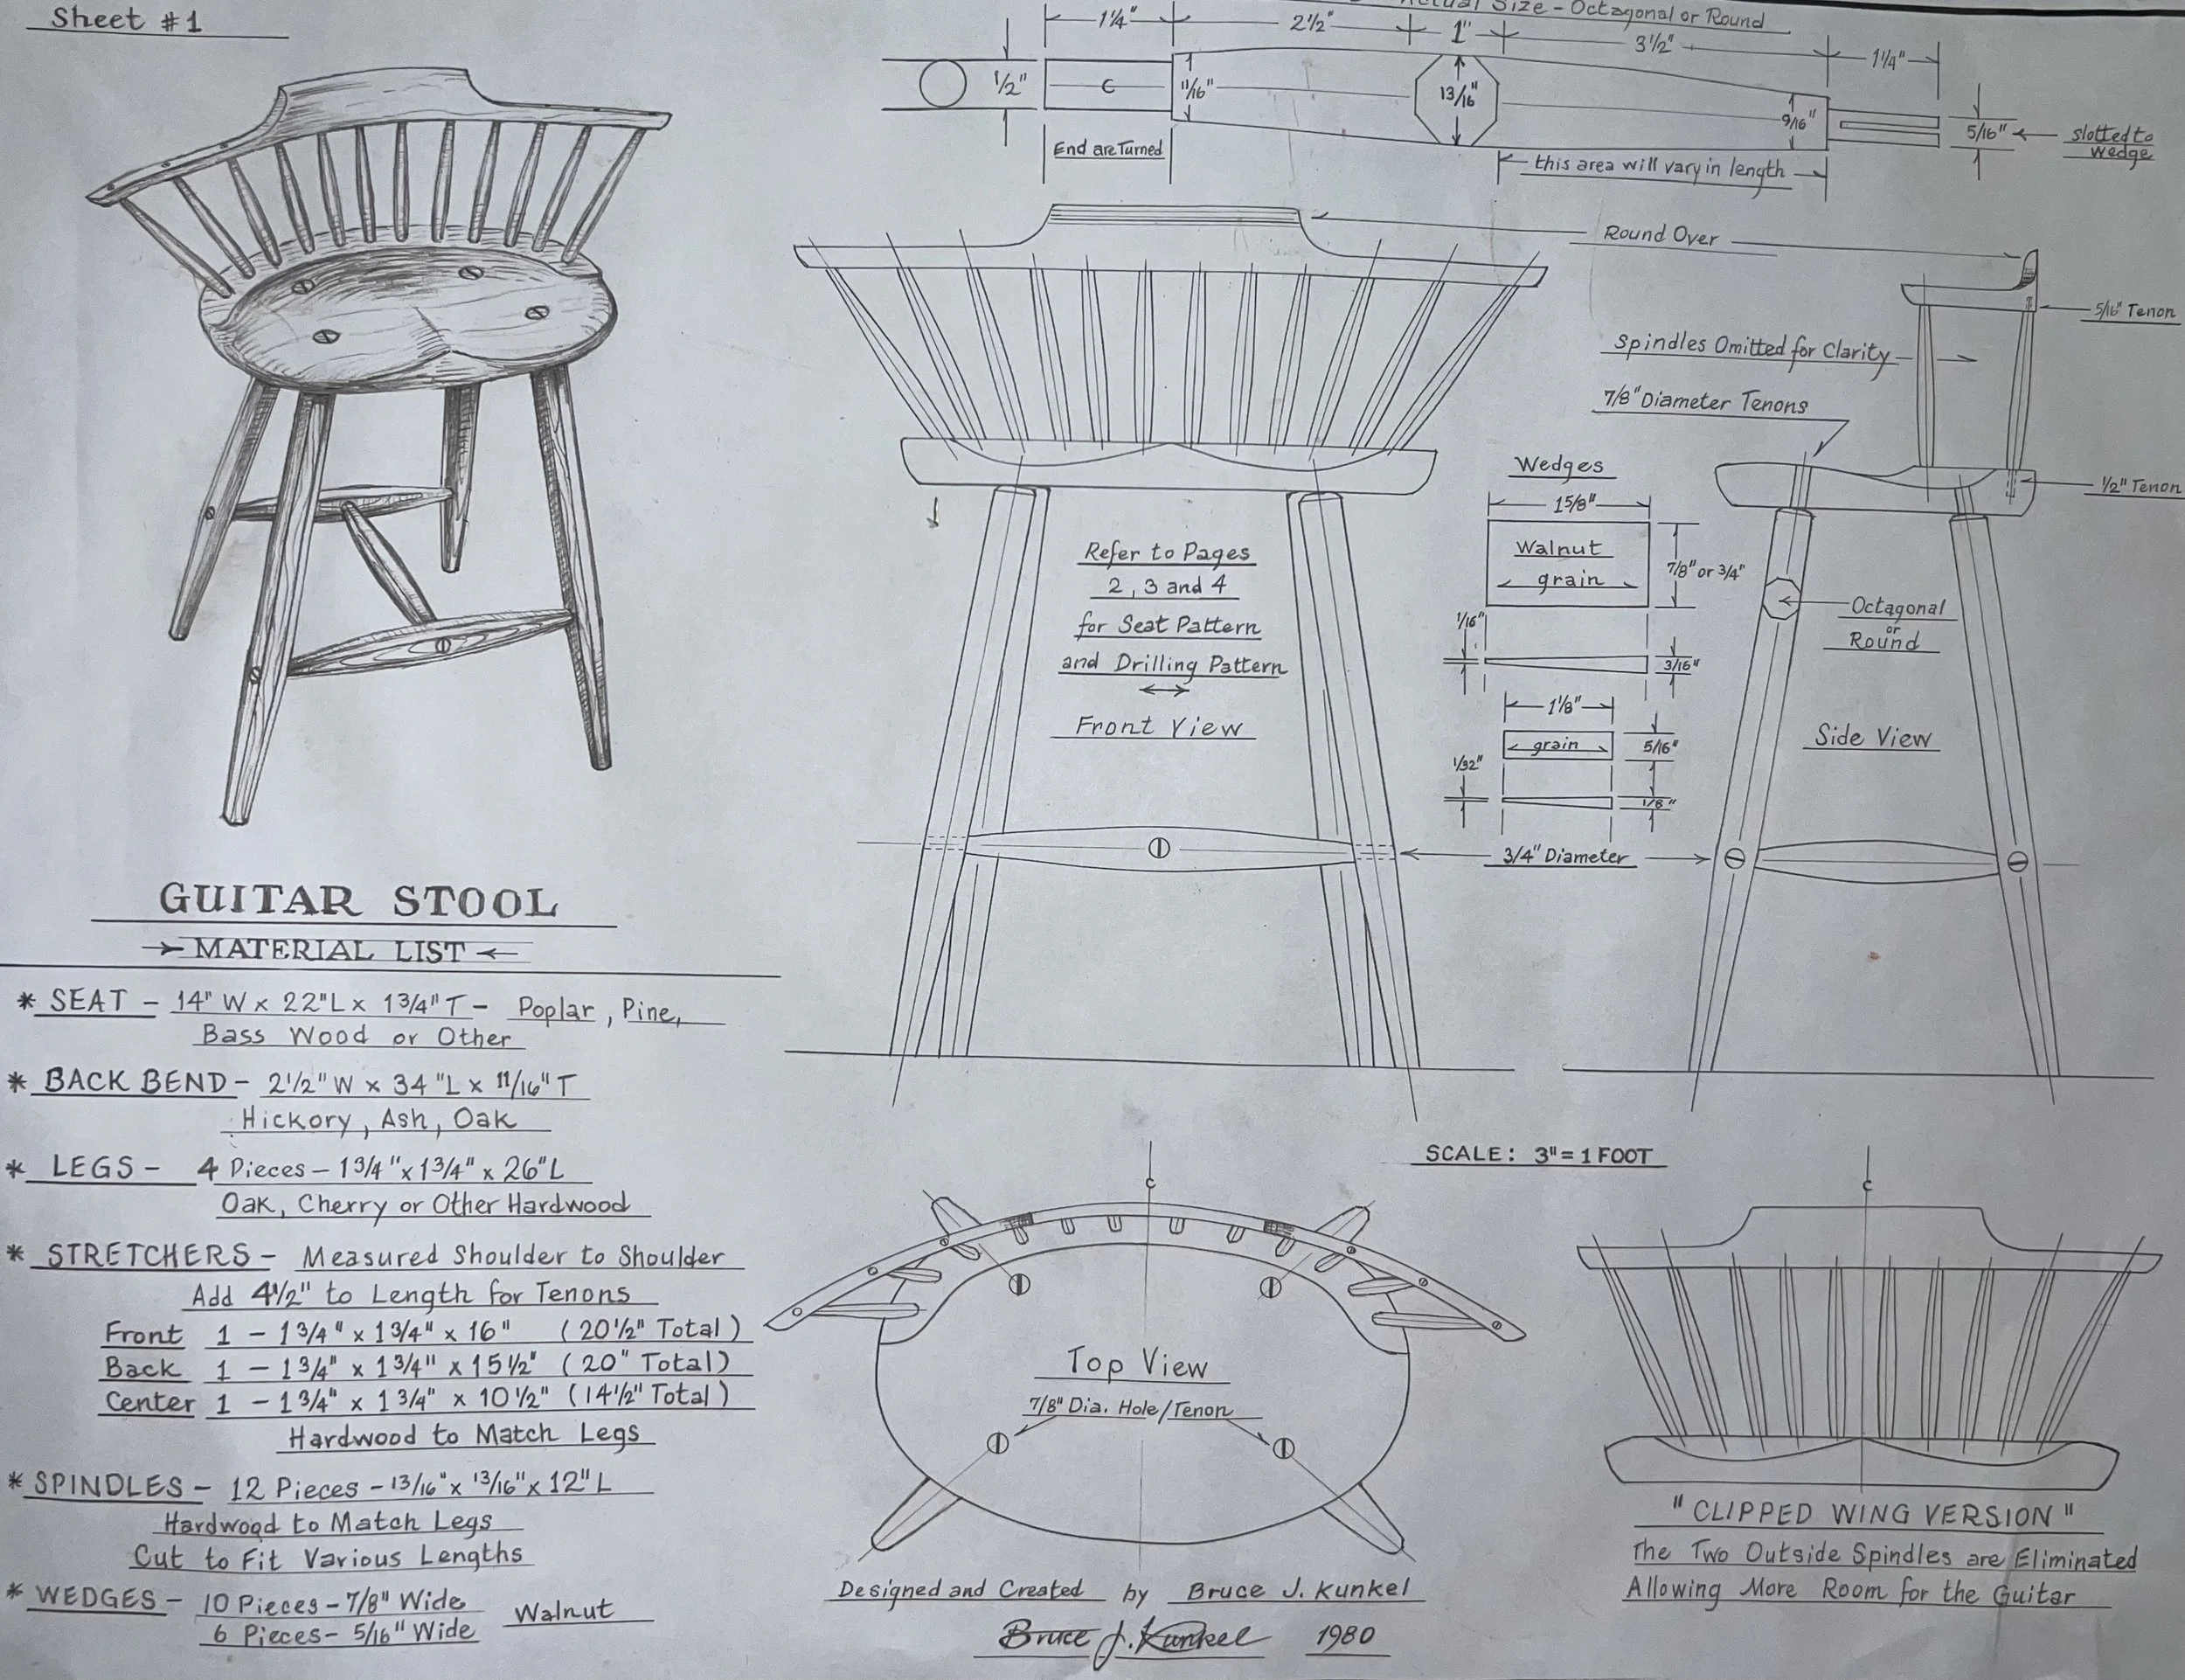 Sheet #1
Actual Size - Octagonal or Round
1 1/4"
2 1/2"
1"
3 1/2"
1 1/4"
1/2"
C
11/16"
13/16"
9/16"
5/16"
slotted to
wedge
End are Turned
this area will vary in length
Round Over
5/16" Tenon
Spindles Omitted for Clarity
7/8" Diameter Tenons
1/2" Tenon
Wedges
1 5/8"
Walnut
grain
7/8" or 3/4"
1/16"
3/16"
1 1/8"
grain
5/16"
1/32"
1/8"
Octagonal
or
Round
Refer to Pages
2, 3 and 4
for Seat Pattern
and Drilling Pattern
Front View
Side View
3/4" Diameter
GUITAR STOOL
MATERIAL LIST
* SEAT - 14" W x 22" L x 1 3/4" T - Poplar, Pine,
Bass Wood or Other
* BACK BEND - 2 1/2" W x 34" L x 11/16" T
Hickory, Ash, Oak
* LEGS - 4 Pieces - 1 3/4" x 1 3/4" x 26" L
Oak, Cherry or Other Hardwood
* STRETCHERS - Measured Shoulder to Shoulder
Add 4 1/2" to Length for Tenons
Front 1 - 1 3/4" x 1 3/4" x 16" (20 1/2" Total)
Back 1 - 1 3/4" x 1 3/4" x 15 1/2" (20" Total)
Center 1 - 1 3/4" x 1 3/4" x 10 1/2" (14 1/2" Total)
Hardwood to Match Legs
* SPINDLES - 12 Pieces - 13/16" x 13/16" x 12" L
Hardwood to Match Legs
Cut to Fit Various Lengths
* WEDGES - 10 Pieces - 7/8" Wide
6 Pieces - 5/16" Wide
Walnut
SCALE: 3" = 1 FOOT
C
Top View
7/8" Dia. Hole/Tenon
Designed and Created by Bruce J. Kunkel
Bruce J. Kunkel 1980
C
"CLIPPED WING VERSION"
The Two Outside Spindles are Eliminated
Allowing More Room for the Guitar